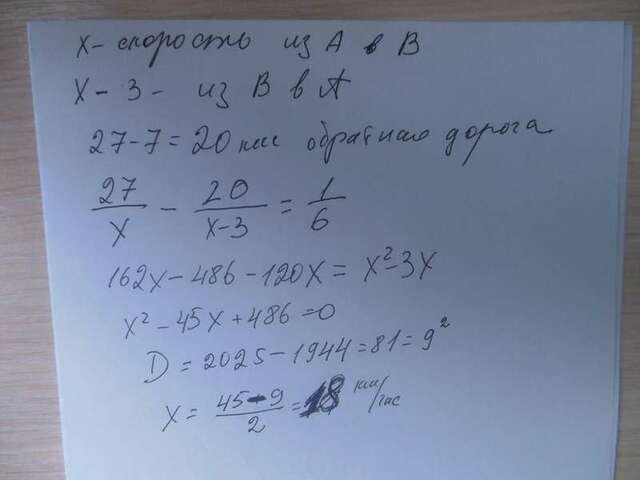 x - скорость из А в В
x - 3 - из В в А
27-7=20 км обратная дорога
27/x - 20/x-3 = 1/6
162x - 486 - 120x = x² - 3x
x² - 45x + 486 = 0
D = 2025 - 1944 = 81 = 9²
x = 45-9/2 = 18 км/час